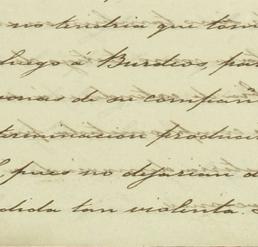 no tendria que tom
luego á Burdeos, pa
onas de su compañ
terminacion produci
pues no dejarian d
dida tan violenta.